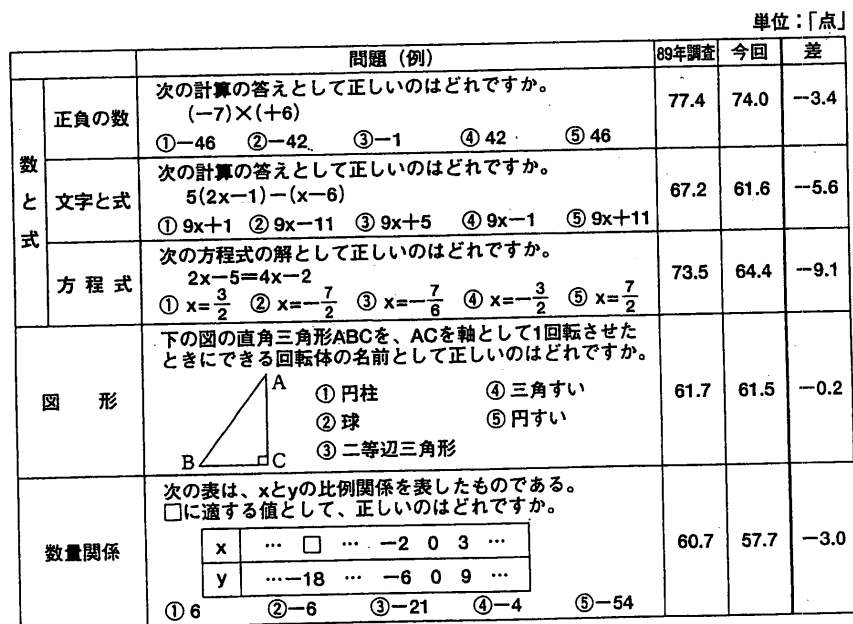 単位：「点」
問題（例） 89年調査 今回 差
数と式
正負の数
次の計算の答えとして正しいのはどれですか。
(−7)×(+6)
①−46 ②−42 ③−1 ④42 ⑤46
77.4 74.0 −3.4
文字と式
次の計算の答えとして正しいのはどれですか。
5(2x−1)−(x−6)
①9x+1 ②9x−11 ③9x+5 ④9x−1 ⑤9x+11
67.2 61.6 −5.6
方程式
次の方程式の解として正しいのはどれですか。
2x−5=4x−2
① x=3/2 ② x=−7/2 ③ x=−7/6 ④ x=−3/2 ⑤ x=7/2
73.5 64.4 −9.1
図形
下の図の直角三角形ABCを、ACを軸として1回転させた
ときにできる回転体の名前として正しいのはどれですか。
A
B
C
①円柱 ④三角すい
②球 ⑤円すい
③二等辺三角形
61.7 61.5 −0.2
数量関係
次の表は、xとyの比例関係を表したものである。
□に適する値として、正しいのはどれですか。
x … □ … −2 0 3 …
y …−18 … −6 0 9 …
①6 ②−6 ③−21 ④−4 ⑤−54
60.7 57.7 −3.0